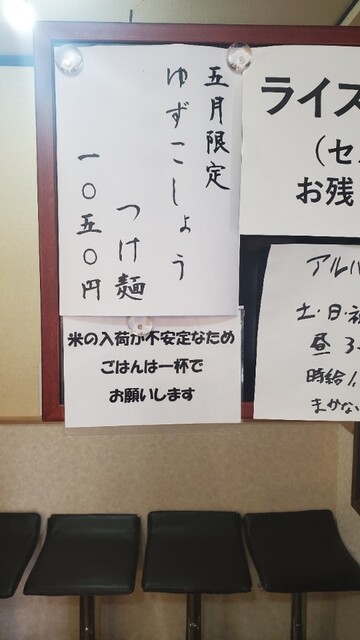 五月限定
ゆずこしょう
つけ麺
一〇五〇円
米の入荷が不安定なため
ごはんは一杯で
お願いします
ライス
（セ
お残
アルバ
土・日・祝
昼 3
時給1,
まかない